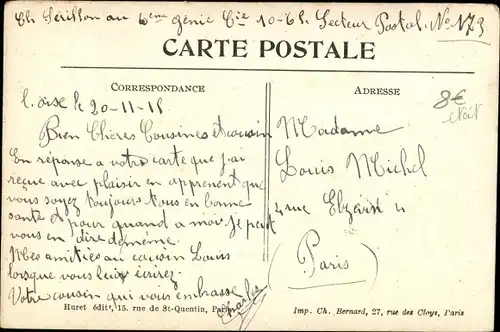 Ch Sérillon au 6ème génie Cie 10-6h Secteur Postal. No 173
CARTE POSTALE
CORRESPONDANCE
ADRESSE
8€
l'oise le 20-11-15
Bien Chères Cousines et cousin
En réponse a votre carte que j'ai
reçue avec plaisir en apprenent que
vous soyez toujours tous en bonne
santé et pour quand a moi je peut
vous en dire de meme
Mes amitiés au cousin Louis
lorsque vous leur écrirez.
Votre cousin qui vous embrasse
Charles
Madame
Louis Michel
4 rue Elzévir 4
(Paris)
Huret édit, 15, rue de St-Quentin, Paris
Imp. Ch. Bernard, 27, rue des Cloys, Paris